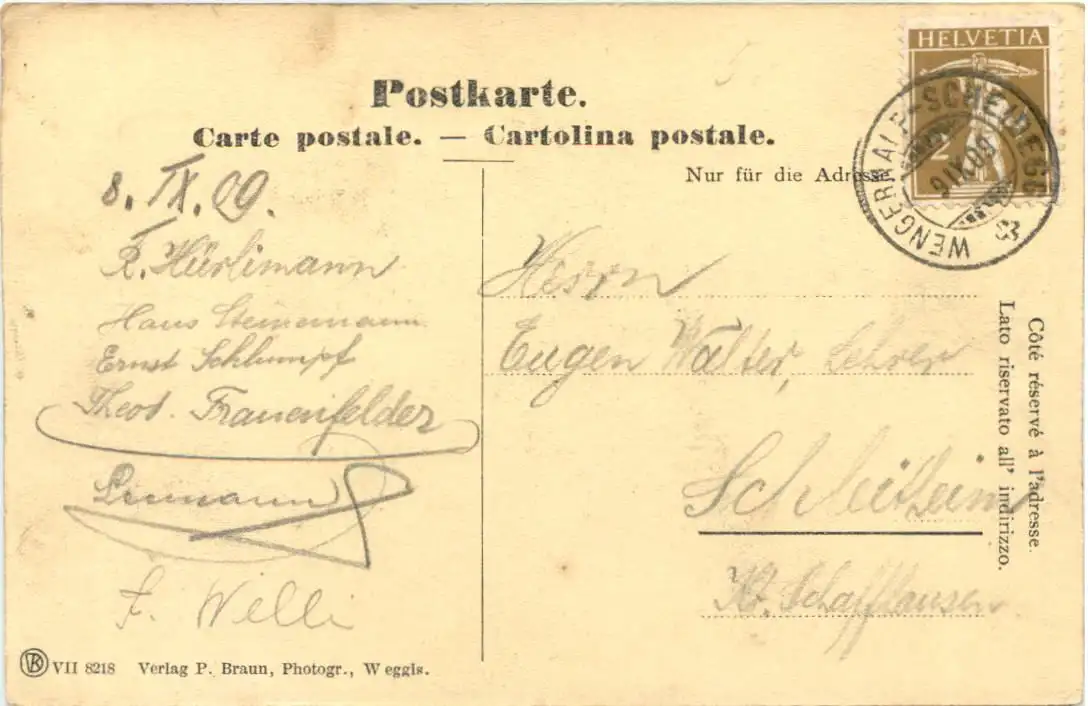 Postkarte.
Carte postale. — Cartolina postale.
Nur für die Adresse.
HELVETIA
2
WENGERNALP-SCHEIDEGG
9 IX 09
8. IX. 09.
R. Hürlimann
Hans Steinemann
Ernst Schlumpf
Theod. Frauenfelder
F. Willi
Herrn
Eugen Walter, Lehrer
Schleitheim
Kt. Schaffhausen
Côté réservé à l'adresse.
Lato riservato all' indirizzo.
VII 8218 Verlag P. Braun, Photogr., Weggis.